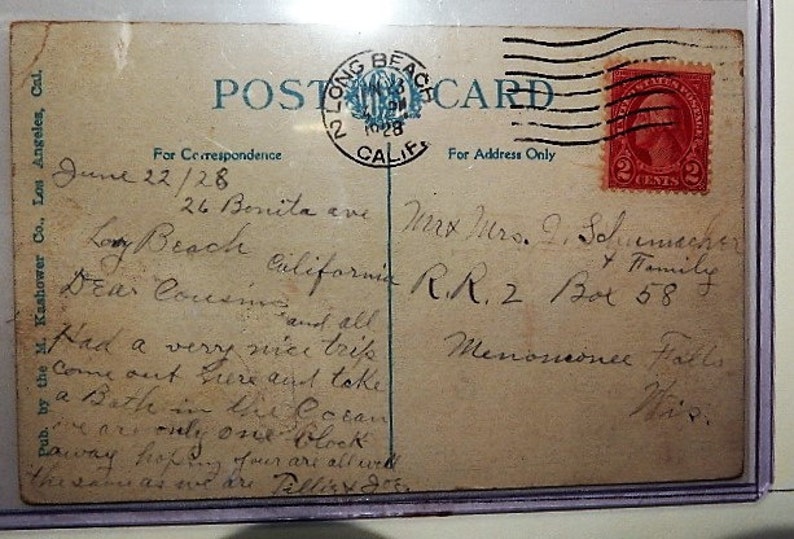 POST CARD
2 LONG BEACH
CALIF.
1928
UNITED STATES POSTAGE
2 CENTS 2
For Correspondence
For Address Only
Pub. by the M. Kashower Co., Los Angeles, Cal.
June 22/28
26 Bonita ave
Long Beach
California
Dear Cousins
and all
Had a verry nice trip
come out here and take
a Bath in the Ocean
we are only one block
away hoping your are all well
the same as we are Tillie & Joe.
Mr & Mrs. J. Schumacher
& Family
R.R. 2 Box 58
Menomonee Falls
Wis.